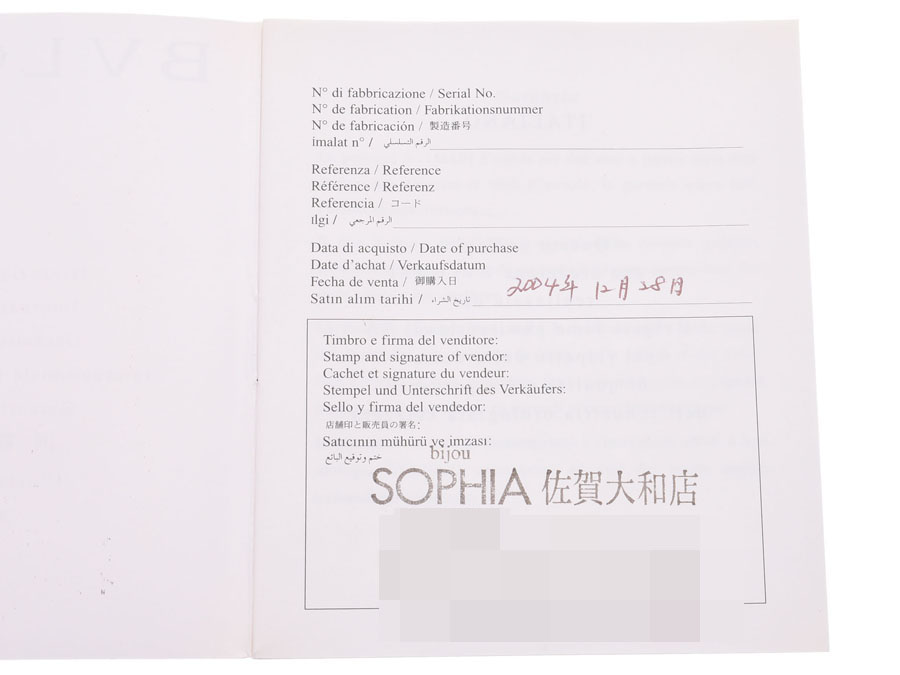 N° di fabbricazione / Serial No.
N° de fabrication / Fabrikationsnummer
N° de fabricación / 製造番号
imalat n° / الرقم التسلسلي
Referenza / Reference
Référence / Referenz
Referencia / コード
Ilgi / الرقم المرجعي
Data di acquisto / Date of purchase
Date d'achat / Verkaufsdatum
Fecha de venta / 御購入日
Satın alım tarihi / تاريخ الشراء 2004年 12月 28日
Timbro e firma del venditore:
Stamp and signature of vendor:
Cachet et signature du vendeur:
Stempel und Unterschrift des Verkäufers:
Sello y firma del vendedor:
店舗印と販売員の署名:
Satıcının mühürü ve imzası:
ختم وتوقيع البائع
bijou
SOPHIA 佐賀大和店